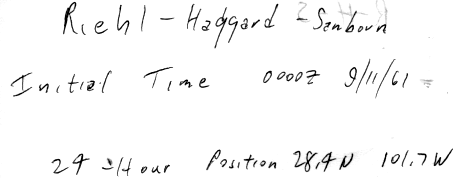 Riehl - Haggard - Sanborn
Initial Time 0000Z 9/11/61
24 - Hour Position 28.4N 101.7W